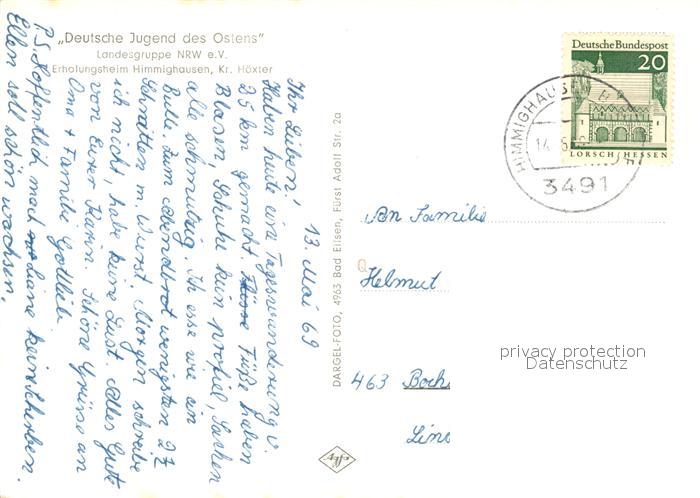 „Deutsche Jugend des Ostens"
Landesgruppe NRW e.V.
Erholungsheim Himmighausen, Kr. Höxter
13. Mai 69
Ihr Lieben!
Haben heute eine Tageswanderung v.
25 km gemacht Füsse Füße haben
Blasen, Schuhe kein profiel, Sachen
alle schmutzig. Ich esse wie ein
Bulle. Zum Abendbrot wenigsten 27
Schnitten m. Wurst. Morgen schreibe
ich nicht, habe keine Lust. Alles Gute
von Eurer Karin. Schöne Grüsse an
Oma + Familie Gottlieb
P.S. Hoffentlich mach Diane kein Scherben.
Ellen soll schön wachsen.
DARGEL-FOTO, 4963 Bad Eilsen, Fürst Adolf Str. 2a
Agfa
Deutsche Bundespost
20
LORSCH/HESSEN
HIMMIGHAUSEN
14.
3491
An Familie
Helmut
463 Boch
privacy protection
Datenschutz